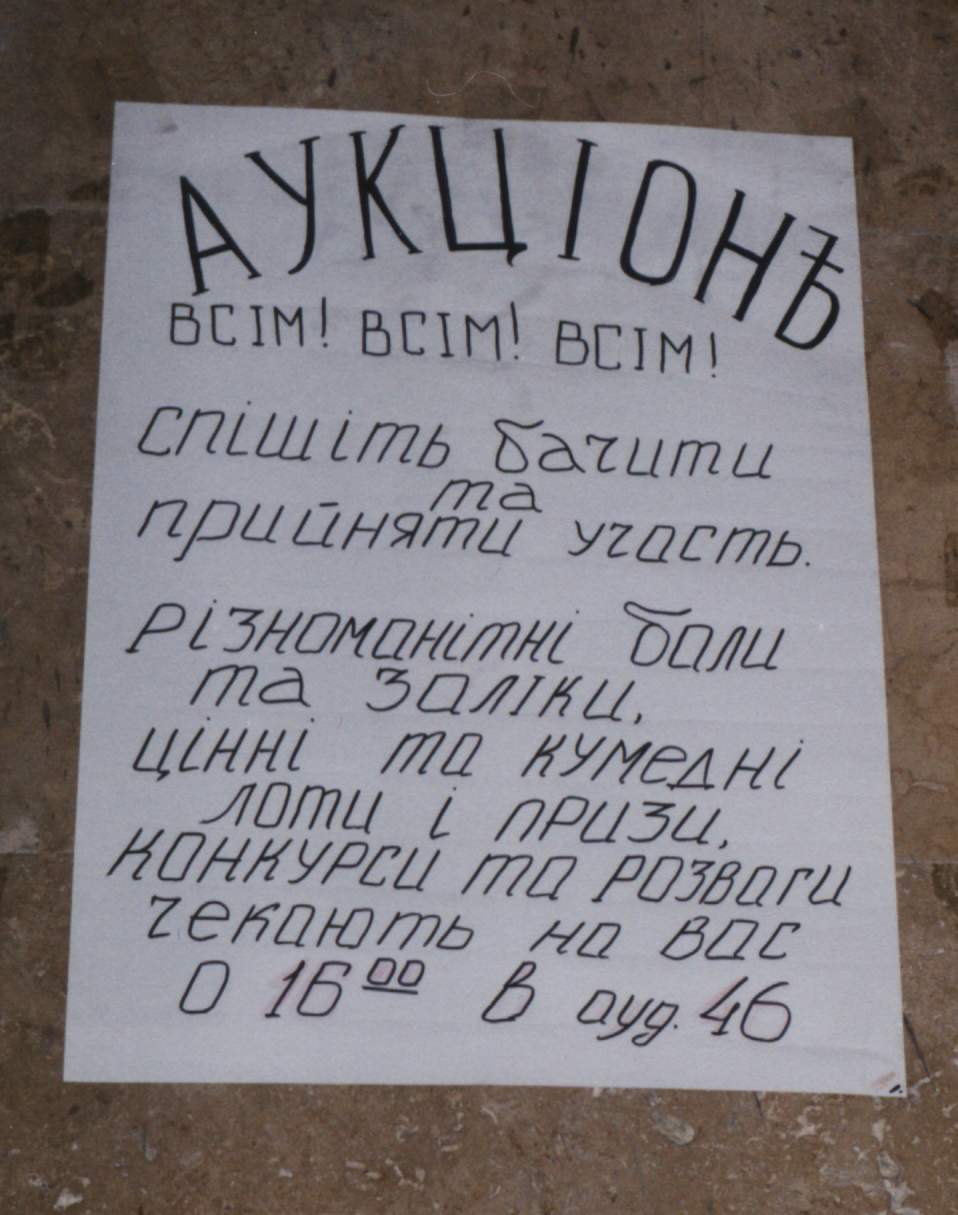 АУКЦІОНѢ
ВСІМ! ВСІМ! ВСІМ!
спішіть бачити
та
прийняти участь.
різноманітні бали
та заліки,
цінні та кумедні
лоти і призи,
конкурси та розваги
чекають на вас
о 16⁰⁰ в ауд. 46